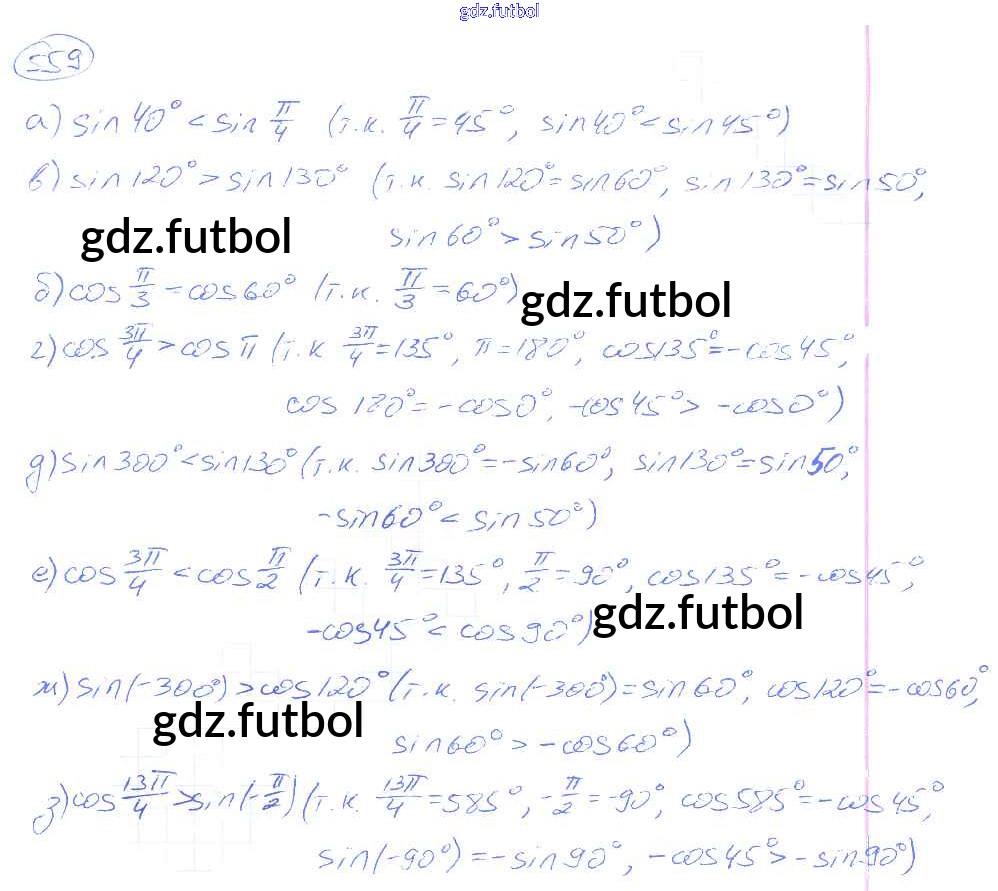 gdz.futbol
559
а) sin 40° < sin π/4 (т.к. π/4 = 45°, sin 40° < sin 45°)
в) sin 120° > sin 130° (т.к. sin 120° = sin 60°, sin 130° = sin 50°,
gdz.futbol sin 60° > sin 50°)
б) cos π/3 = cos 60° (т.к. π/3 = 60°) gdz.futbol
г) cos 3π/4 > cos π (т.к 3π/4 = 135°, π = 180°, cos 135° = - cos 45°,
cos 180° = - cos 0°, - cos 45° > - cos 0°)
д) sin 300° < sin 130° (т.к. sin 300° = - sin 60°, sin 130° = sin 50°,
- sin 60° < sin 50°)
е) cos 3π/4 < cos π/2 (т.к. 3π/4 = 135°, π/2 = 90°, cos 135° = - cos 45°,
- cos 45° < cos 90°) gdz.futbol
ж) sin(-300°) > cos 120° (т.к. sin(-300°) = sin 60°, cos 120° = - cos 60°,
gdz.futbol sin 60° > - cos 60°)
з) cos 13π/4 > sin(-π/2) (т.к. 13π/4 = 585°, -π/2 = -90°, cos 585° = - cos 45°,
sin(-90°) = - sin 90°, - cos 45° > - sin 90°)